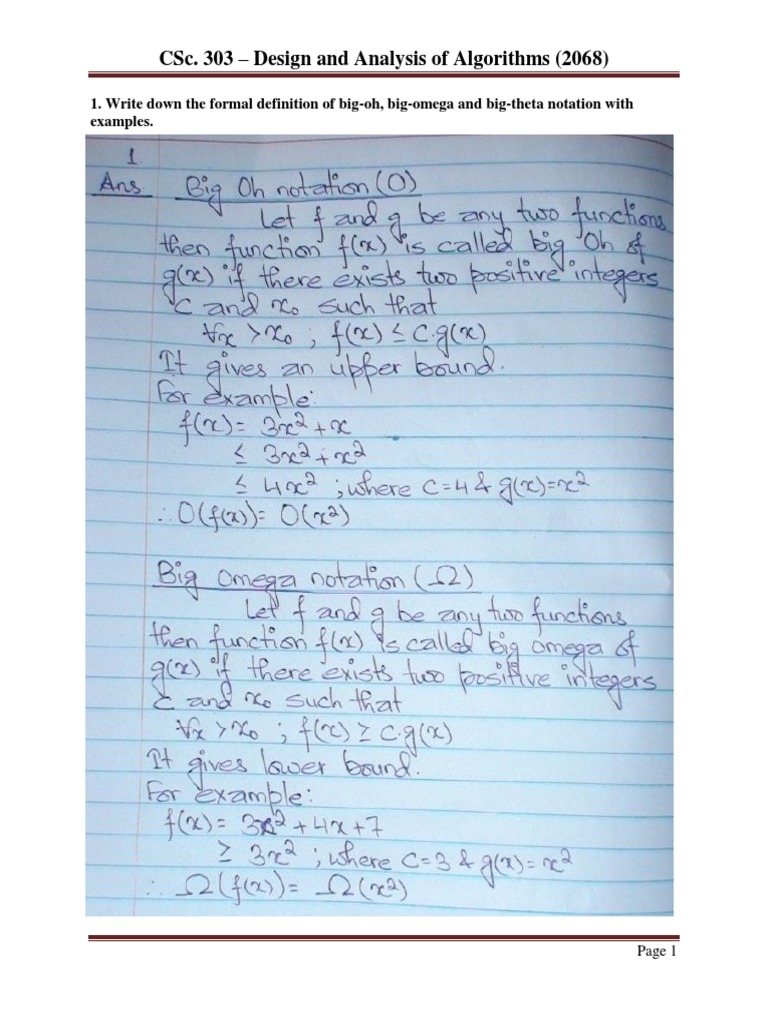 CSc. 303 – Design and Analysis of Algorithms (2068)
1. Write down the formal definition of big-oh, big-omega and big-theta notation with
examples.
1.
Ans Big Oh notation (O)
Let f and g be any two functions
then function f(x) is called big Oh of
g(x) if there exists two positive integers
c and x₀ such that
∀x > x₀ ; f(x) ≤ c.g(x)
It gives an upper bound.
For example:
f(x) = 3x² + x
≤ 3x² + x²
≤ 4x² ; where c=4 & g(x)=x²
∴ O(f(x)) = O(x²)
Big omega notation (Ω)
Let f and g be any two functions
then function f(x) is called big omega of
g(x) if there exists two positive integers
c and x₀ such that
∀x > x₀ ; f(x) ≥ c.g(x)
It gives lower bound.
For example:
f(x) = 3x² + 4x + 7
≥ 3x² ; where c=3 & g(x) = x²
∴ Ω(f(x)) = Ω(x²)
Page 1